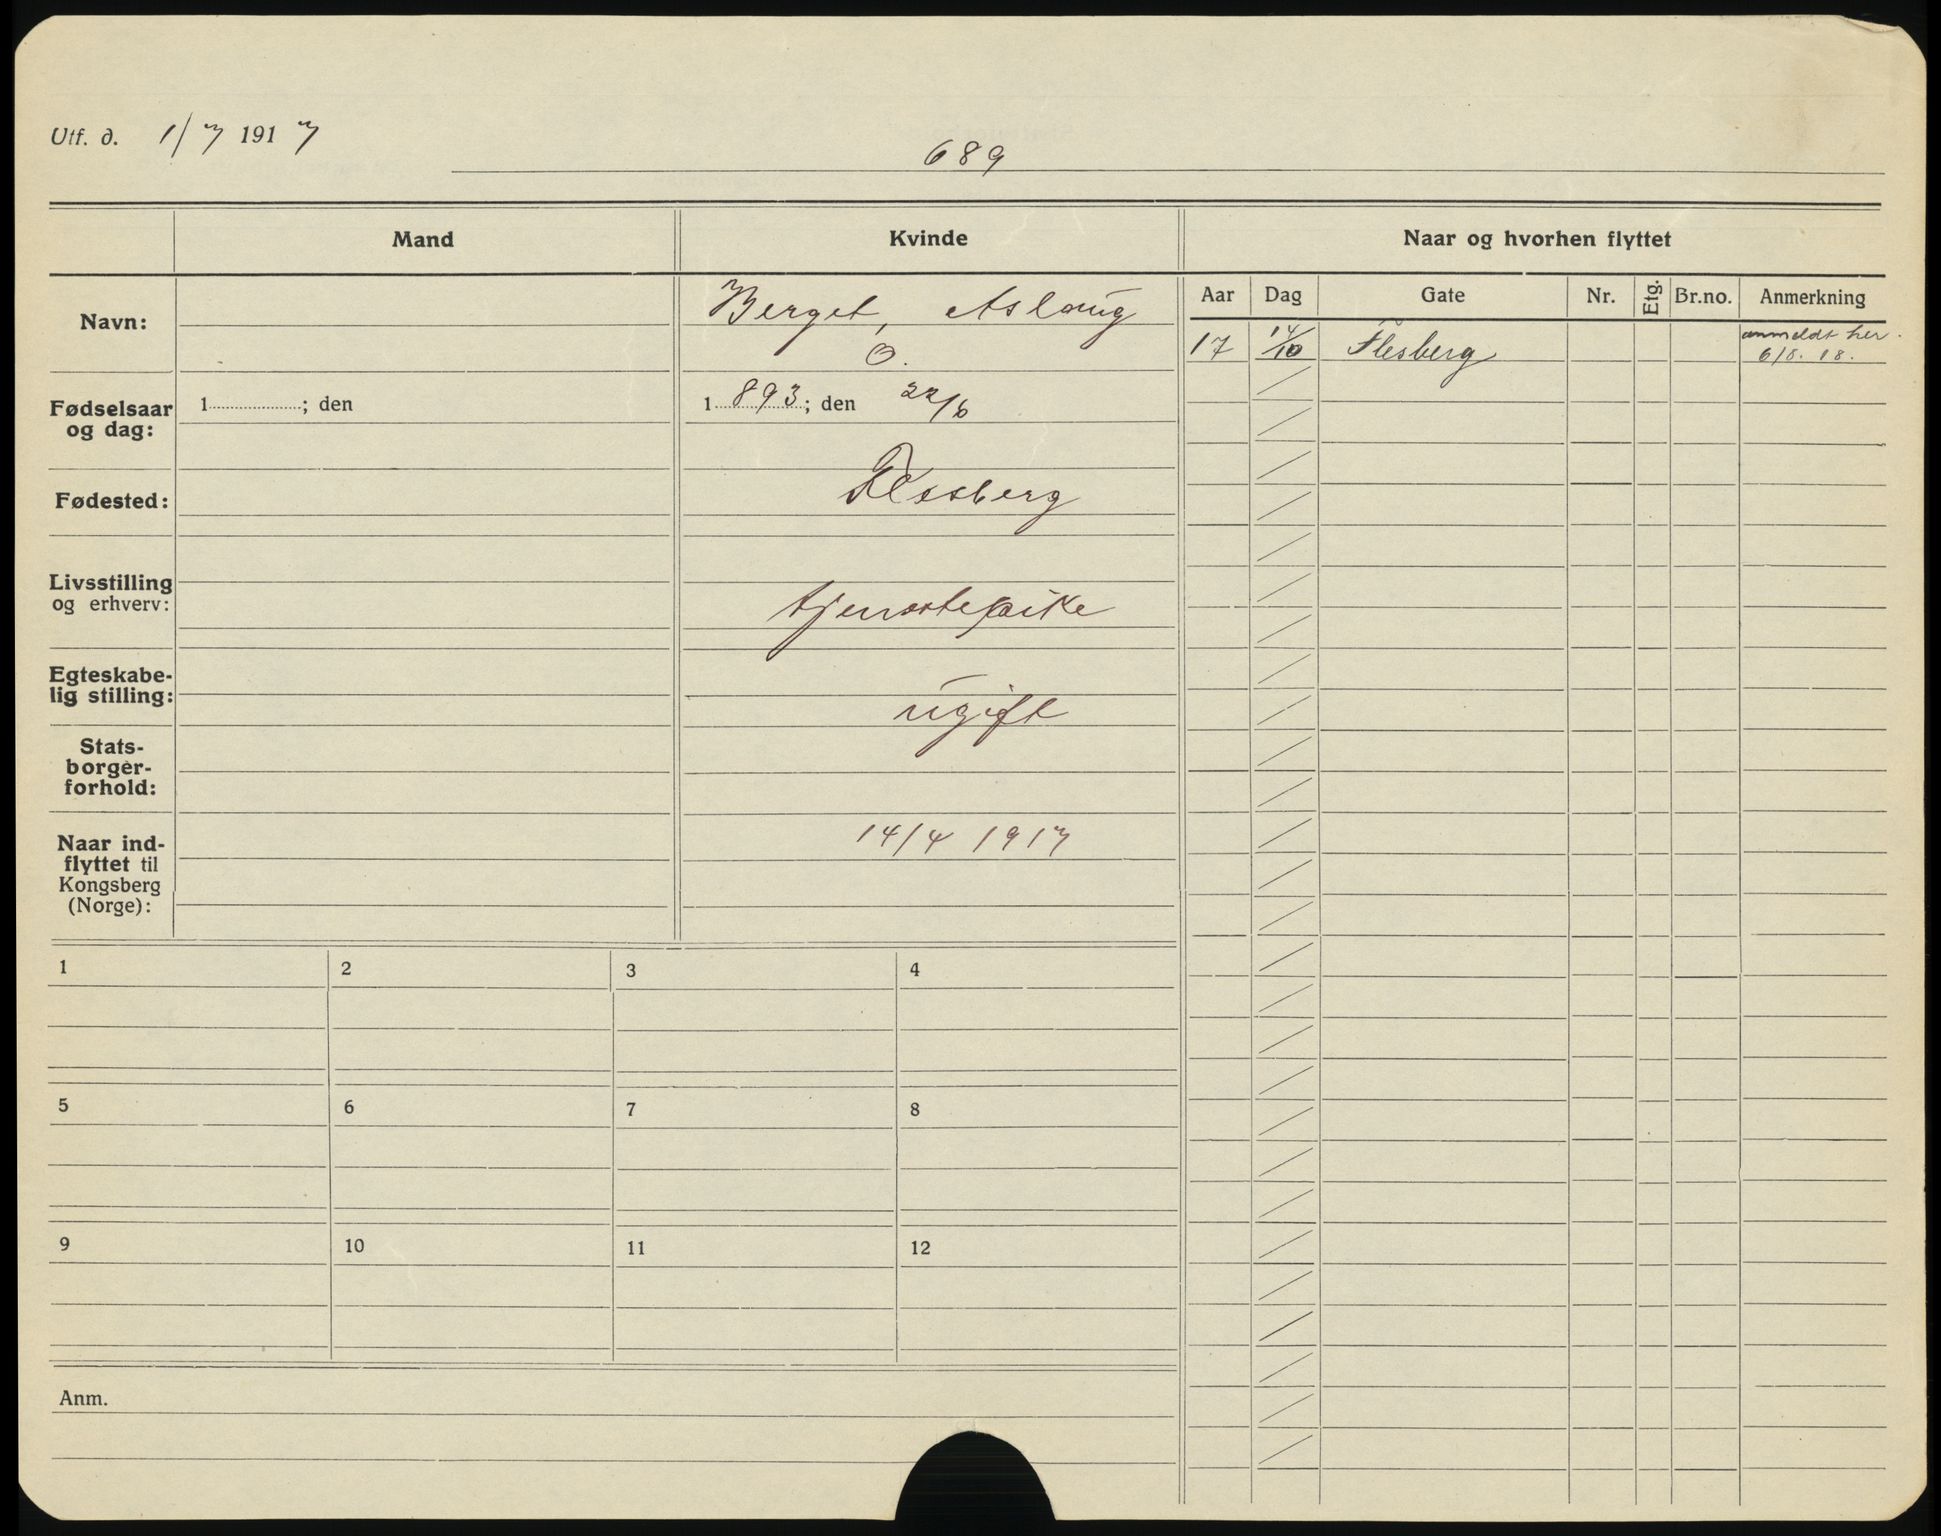 Utf. d. 1/7 1917
689
Mand Kvinde Naar og hvorhen flyttet
Navn: Berget, Aslaug
O.
Fødselsaar og dag: 1..........; den 1893; den 22/6
Fødested: Flesberg
Livsstilling og erhverv: tjenestepike
Egteskabe-
lig stilling: ugift
Stats-
borger-
forhold:
Naar ind-
flyttet til
Kongsberg
(Norge): 14/4 1917
Aar Dag Gate Nr. Etg. Br.no. Anmerkning
17 14/10 Flesberg anmeldt her.
6/8. 18.
1 2 3 4
5 6 7 8
9 10 11 12
Anm.